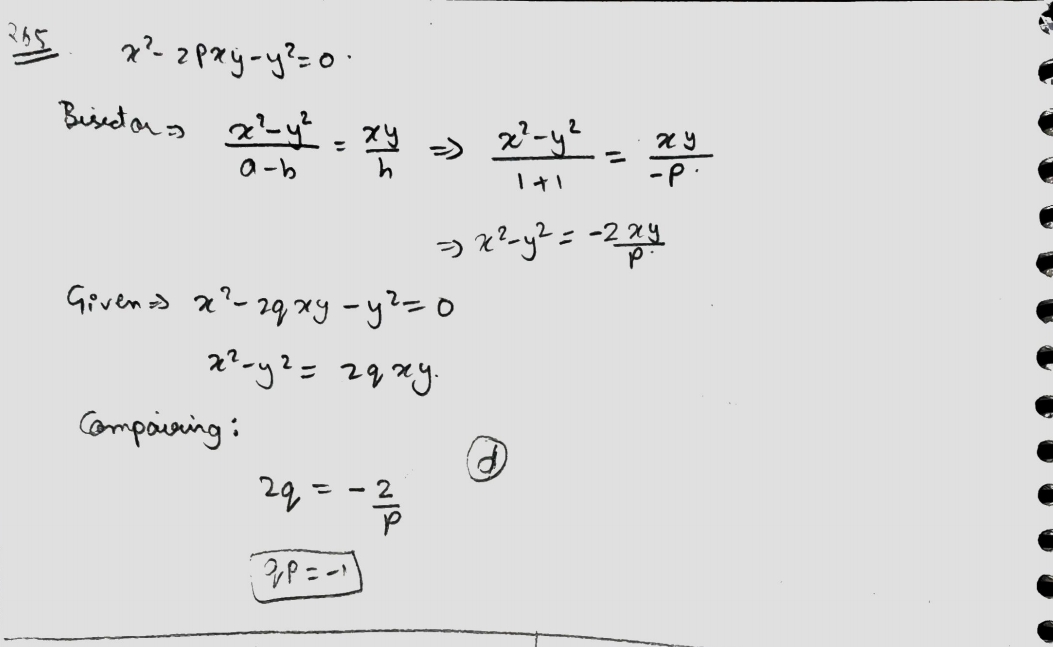 265 x² - 2pxy - y² = 0.
Bisector ⇒ (x² - y²)/(a - b) = xy/h ⇒ (x² - y²)/(1 + 1) = xy/-p.
⇒ x² - y² = -2xy/p.
Given ⇒ x² - 2qxy - y² = 0
x² - y² = 2qxy.
Compairing:
(d)
2q = -2/p
qp = -1